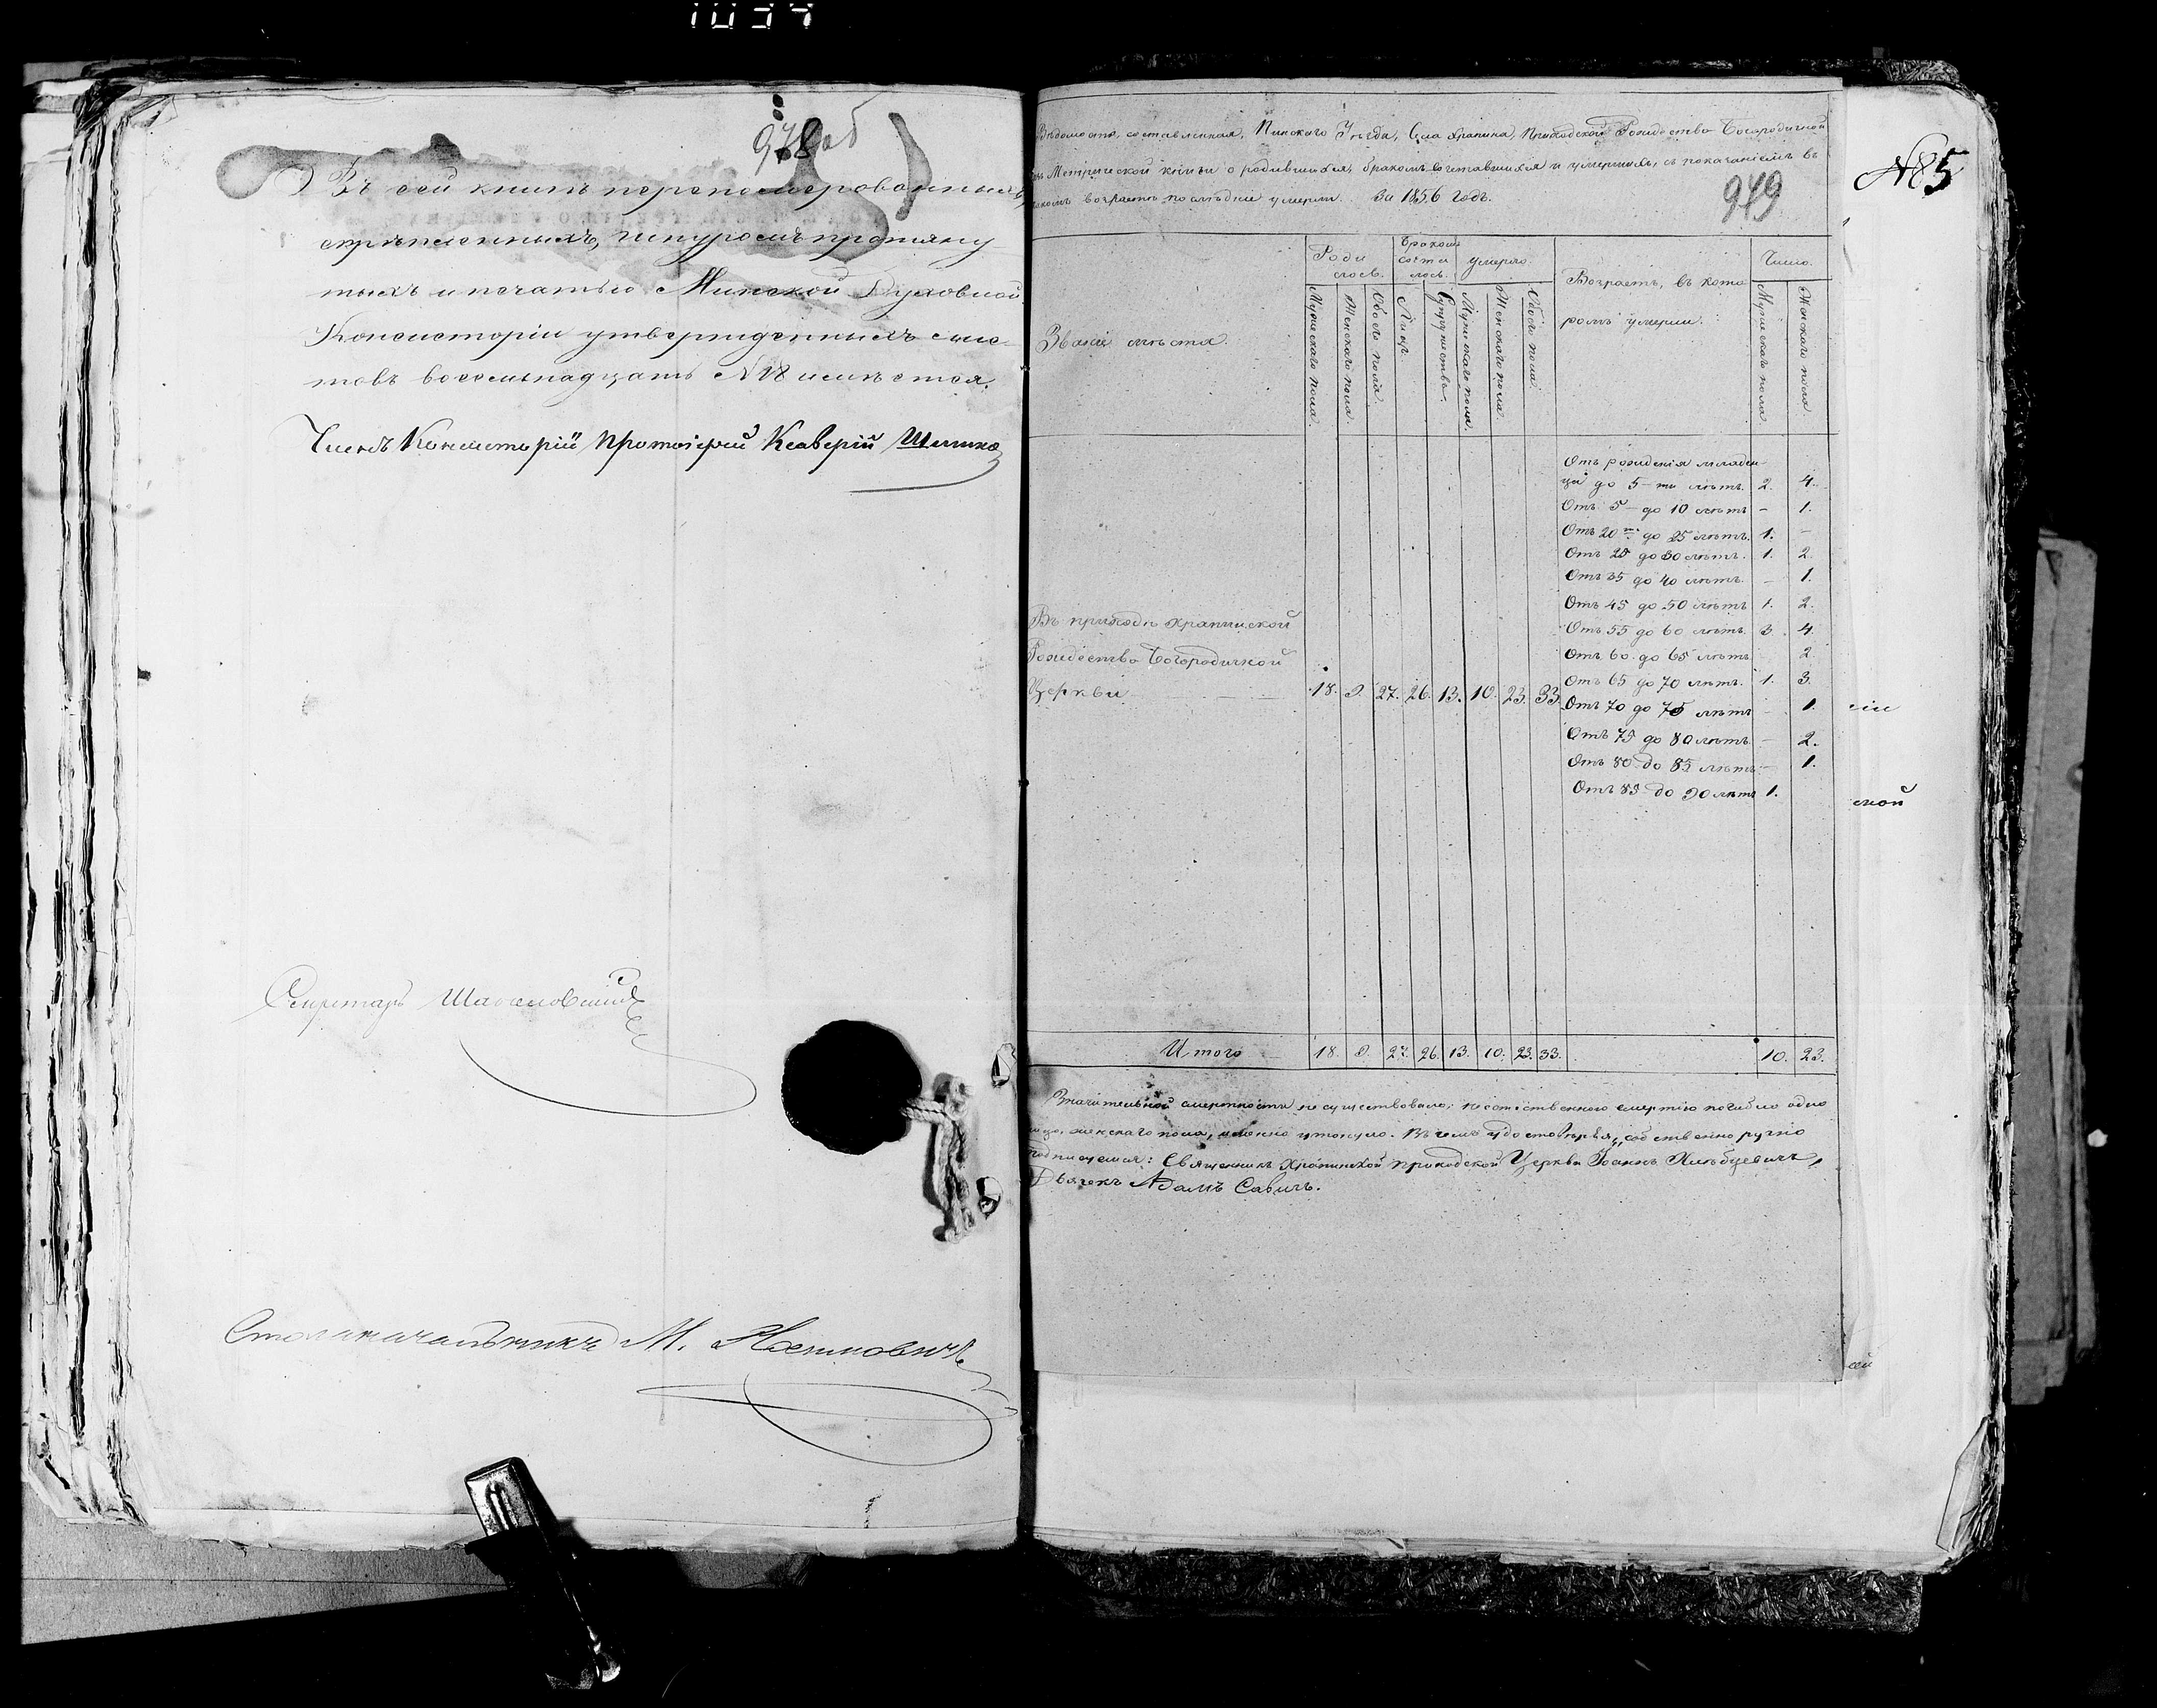 1037
978 об
Въ сей книгѣ перенумерованныхъ,
скрѣпленныхъ, шнуромъ протяну
тыхъ и печатью Минской Духовной
Консисторіи утвержденныхъ лис
товъ восемьнадцать №18 имѣется.
Членъ Консисторіи Протоіерей Ксаверій
Секретарь
Столоначальникъ М.
№85
949
Вѣдомость, составленная, Пинскаго Уѣзда, Села Храпина, Приходской Рождество Богородичной
Метрической книги о родившихся, бракомъ сочетавшихся и умершихъ, съ показаніемъ въ
какомъ возрастѣ послѣдніе умерли. За 1856 годъ.
Званіе мѣста.
Роди
лось.
Бракомъ
сочета
лось.
Умерло.
Возрастъ, въ кото
ромъ умерли.
Число.
Мужескаго пола.
Женскаго пола.
Обоего пола.
Лицъ.
Супружествъ.
Мужескаго пола.
Женскаго пола.
Обоего пола.
Мужескаго пола
Женскаго пола.
Отъ рожденія младен-
ца до 5-ти лѣтъ. 2. 4.
Отъ 5 до 10 лѣтъ - 1.
Отъ 20 до 25 лѣтъ. 1. -
Отъ 25 до 30 лѣтъ. 1. 2.
Отъ 35 до 40 лѣтъ. - 1.
Отъ 45 до 50 лѣтъ 1. 2.
Отъ 55 до 60 лѣтъ. 3. 4.
Отъ 60 до 65 лѣтъ - 2.
Отъ 65 до 70 лѣтъ. 1. 3.
Отъ 70 до 75 лѣтъ - 1.
Отъ 75 до 80 лѣтъ. - 2.
Отъ 80 до 85 лѣтъ. - 1.
Отъ 85 до 90 лѣтъ 1.
Въ приходѣ Храпинской
Рождество Богородичной
Церкви 18. 9. 27. 26. 13. 10. 23. 33.
Итого 18. 9. 27. 26. 13. 10. 23. 33. 10. 23.
Значительной смертности не существовало; неестественною смертію погибло одно
лицо, женскаго пола, именно утонуло. Въ чемъ удостовѣряя, собственноручно
подписуемся: Священникъ Храпинской приходской Церкви Іоаннъ Хлѣбцевичъ,
Дьячекъ Адамъ Савичъ.
ской